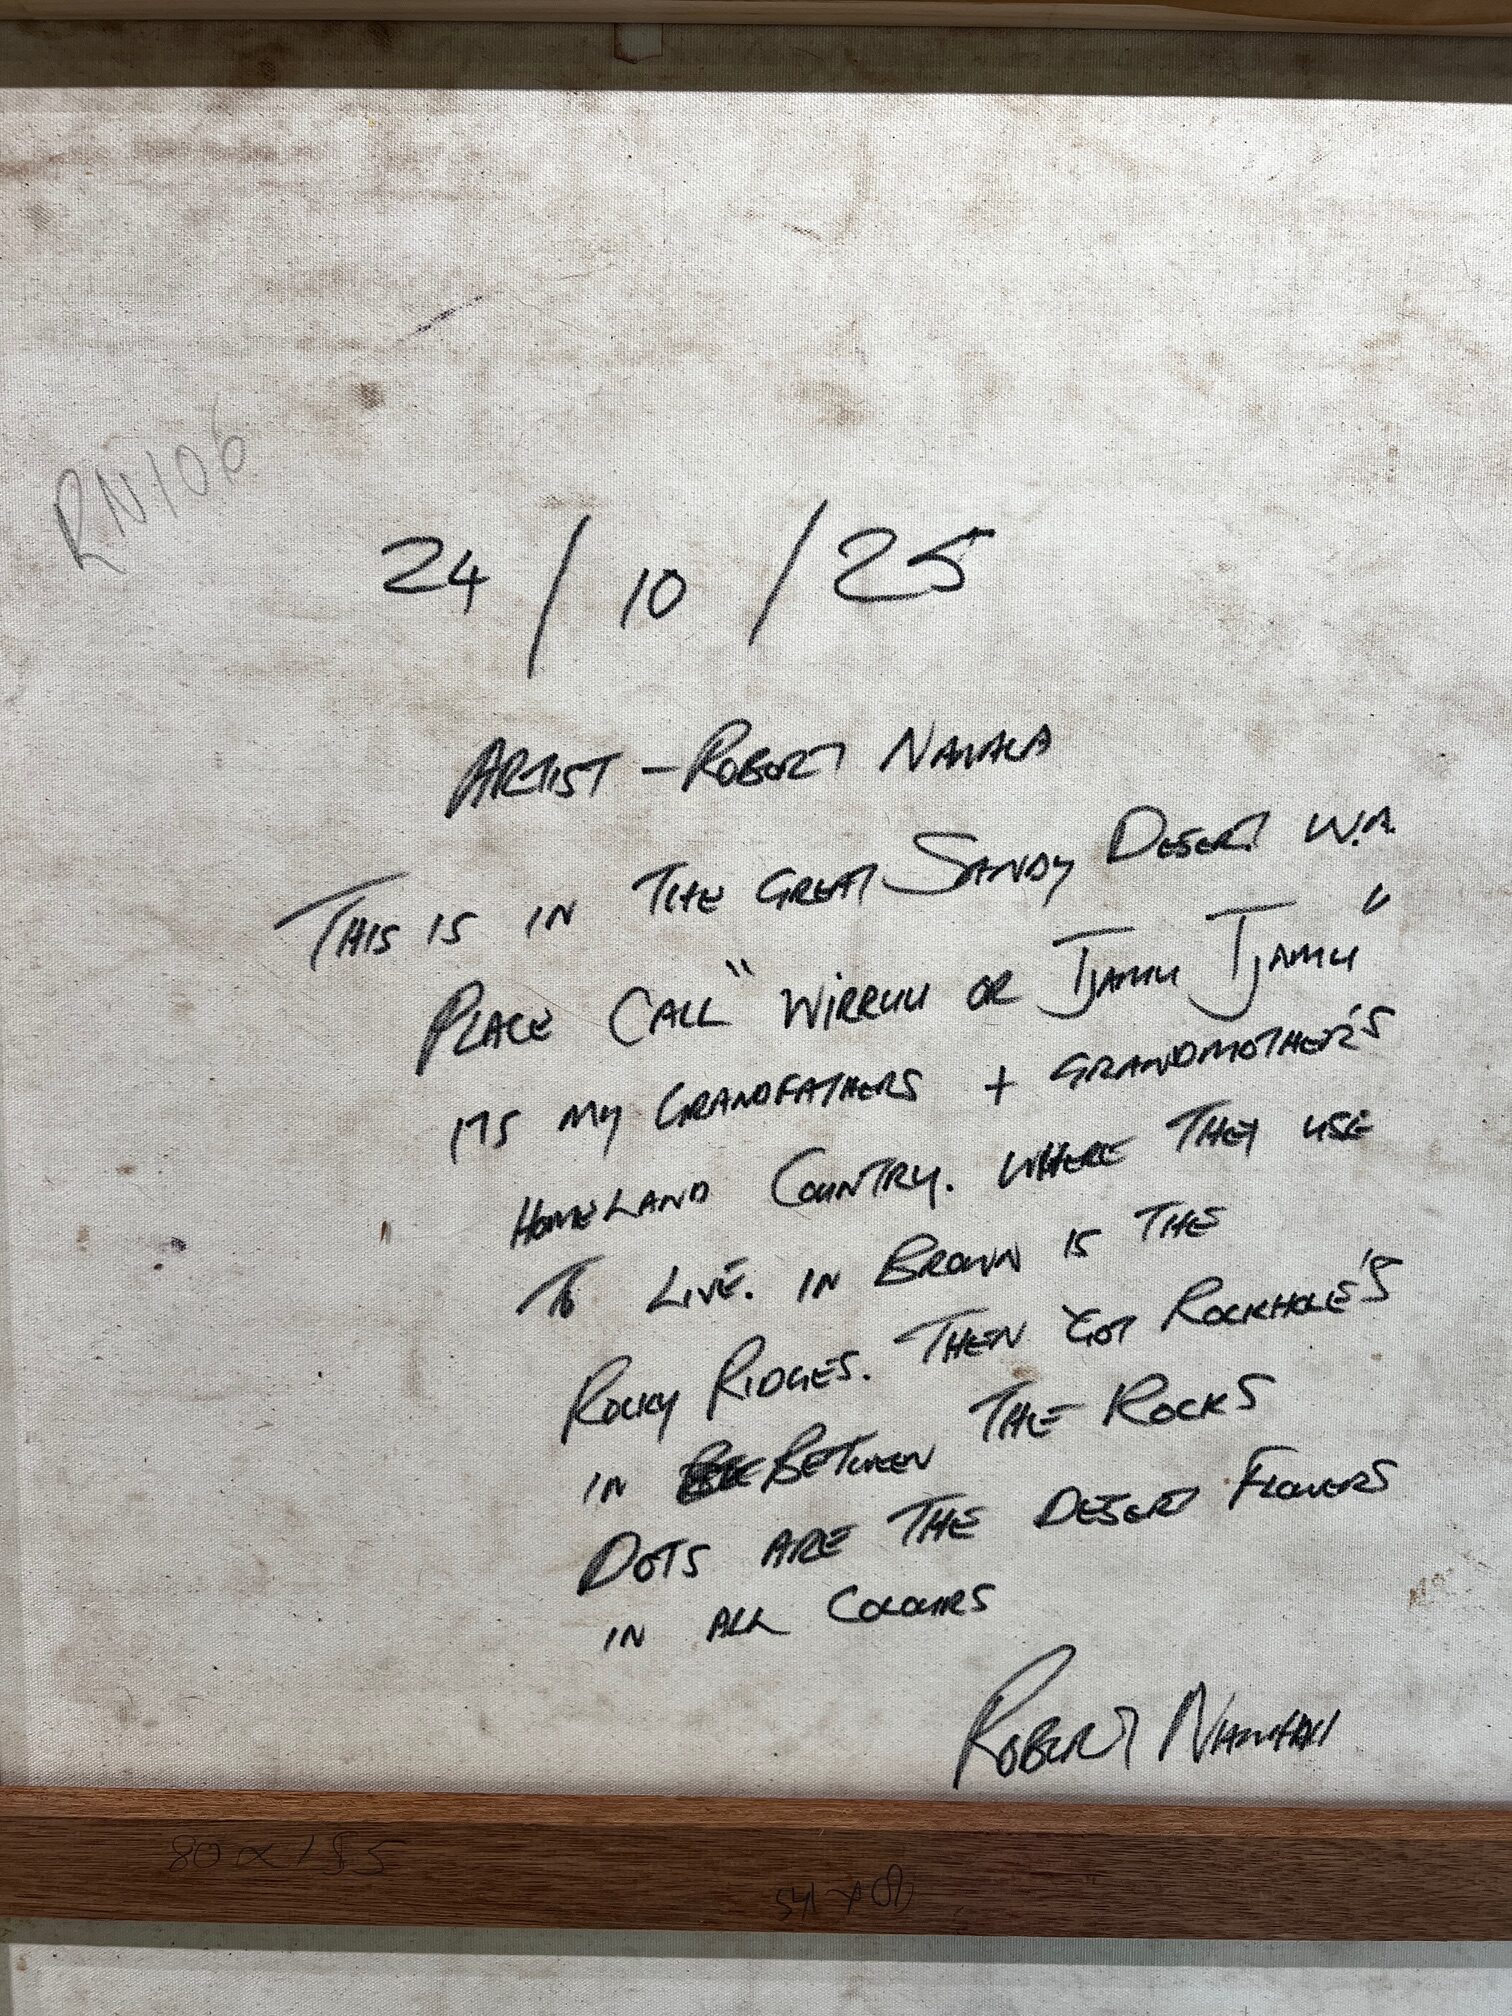 RN106
24 / 10 / 25
ARTIST - ROBERT
THIS IS IN THE GREAT SANDY DESERT W.A.
PLACE CALL "WIRRUU OR TJAMU TJAMU"
ITS MY GRANDFATHERS + GRANDMOTHER'S
HOMELAND COUNTRY. WHERE THEY USE
TO LIVE. IN BROWN IS THE
ROCKY RIDGES. THEN GOT ROCKHOLE'S
IN BETWEEN THE ROCKS
DOTS ARE THE DESERT FLOWERS
IN ALL COLOURS
ROBERT